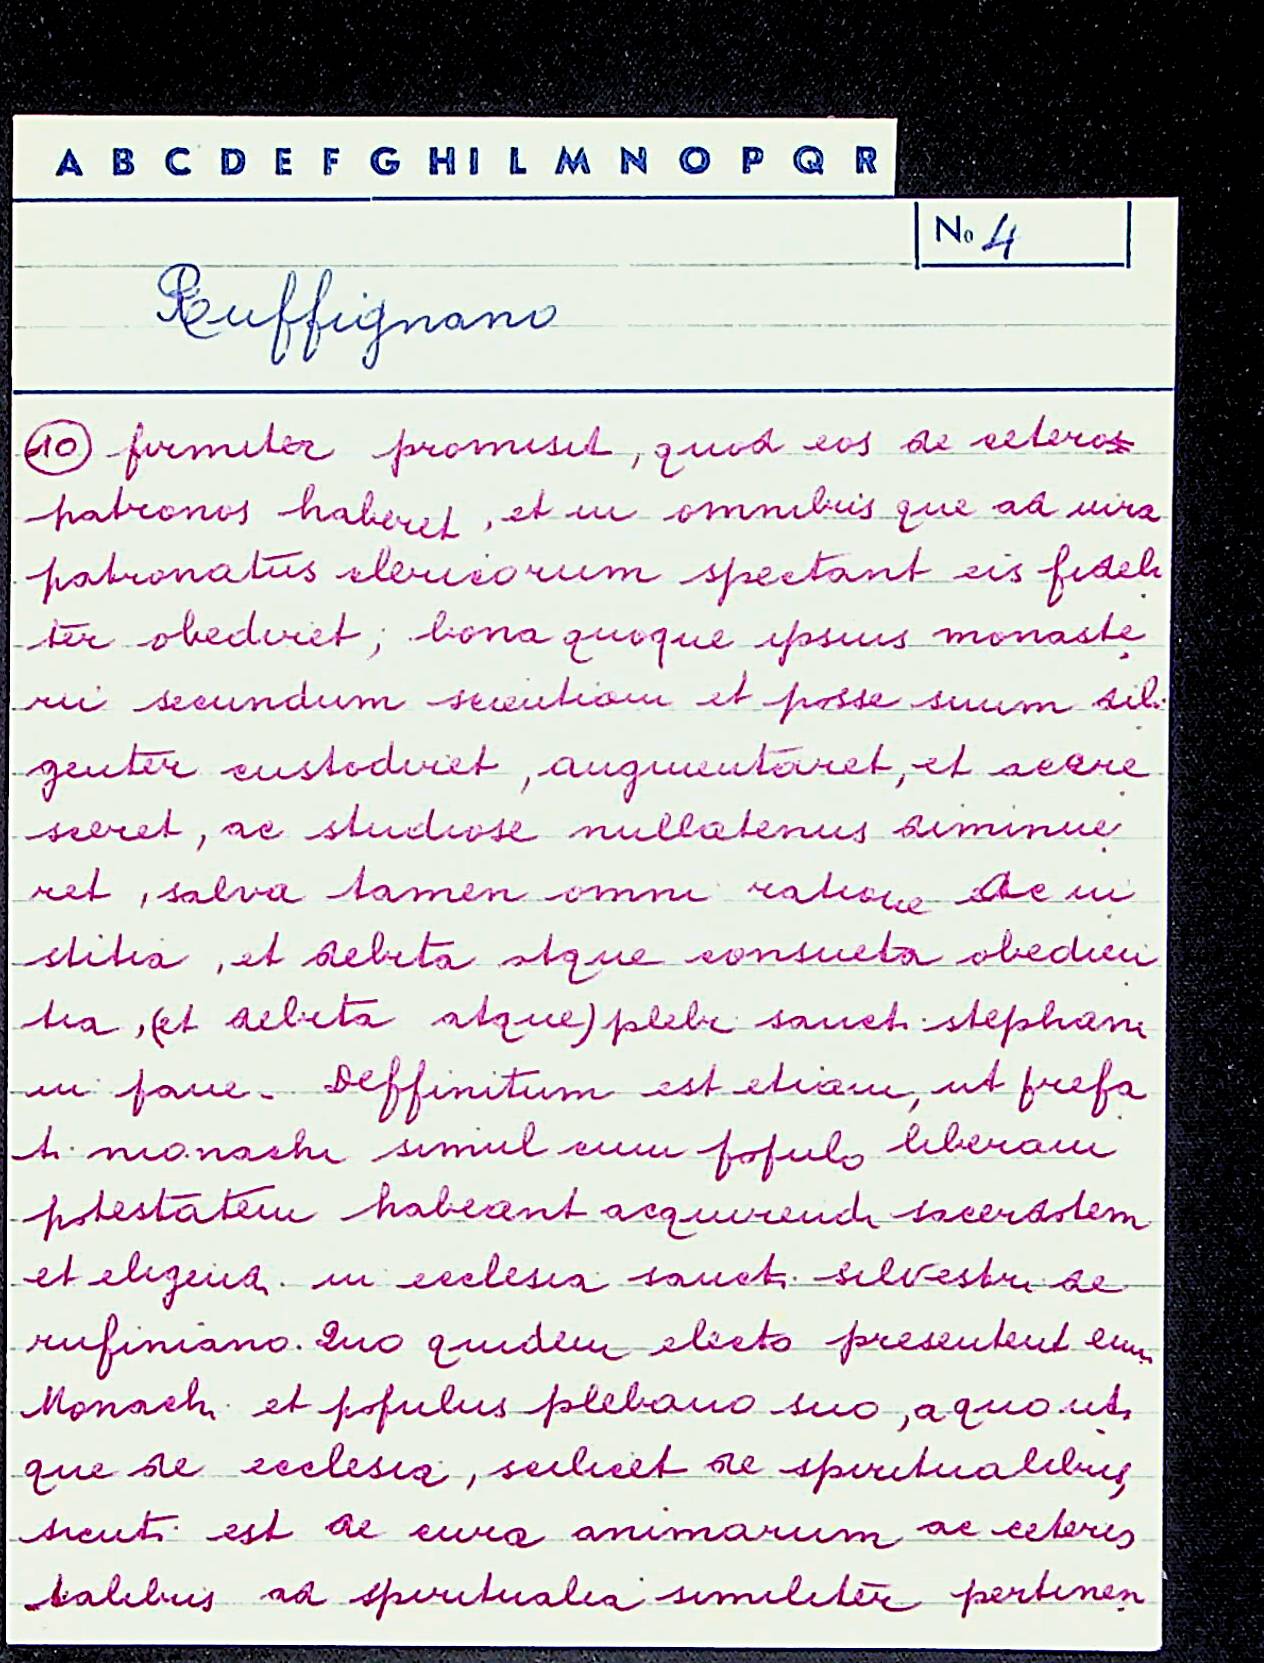 A B C D E F G H I L M N O P Q R
No 4
Ruffignano
10 firmiter promisit, quod eos de cetero
patronos haberet, et in omnibus que ad iura
patronatus clericorum spectant eis fideli
ter obediret; bona quoque ipsius monaste
rii secundum scientiam et posse suum dili
genter custodiret, augmentaret, et accre
sceret, ac studiose nullatenus diminue
ret, salva tamen omni ratione ac iu
stitia, et debita atque consueta obedien
tia, (et debita atque) plebi sancti stephani
in pane. Deffinitum est etiam, ut prefa
ti monachi simul cum populo liberam
potestatem habeant acquirendi sacerdotem
et eligendi in ecclesia sancti silvestri de
rufiniano. Quo quidem electo presentent eum
Monachi et populus plebano suo, a quo uti
que de ecclesia, scilicet de spiritualibus,
sicuti est de cura animarum ac ceteris
talibus ad spiritualia similiter pertinen